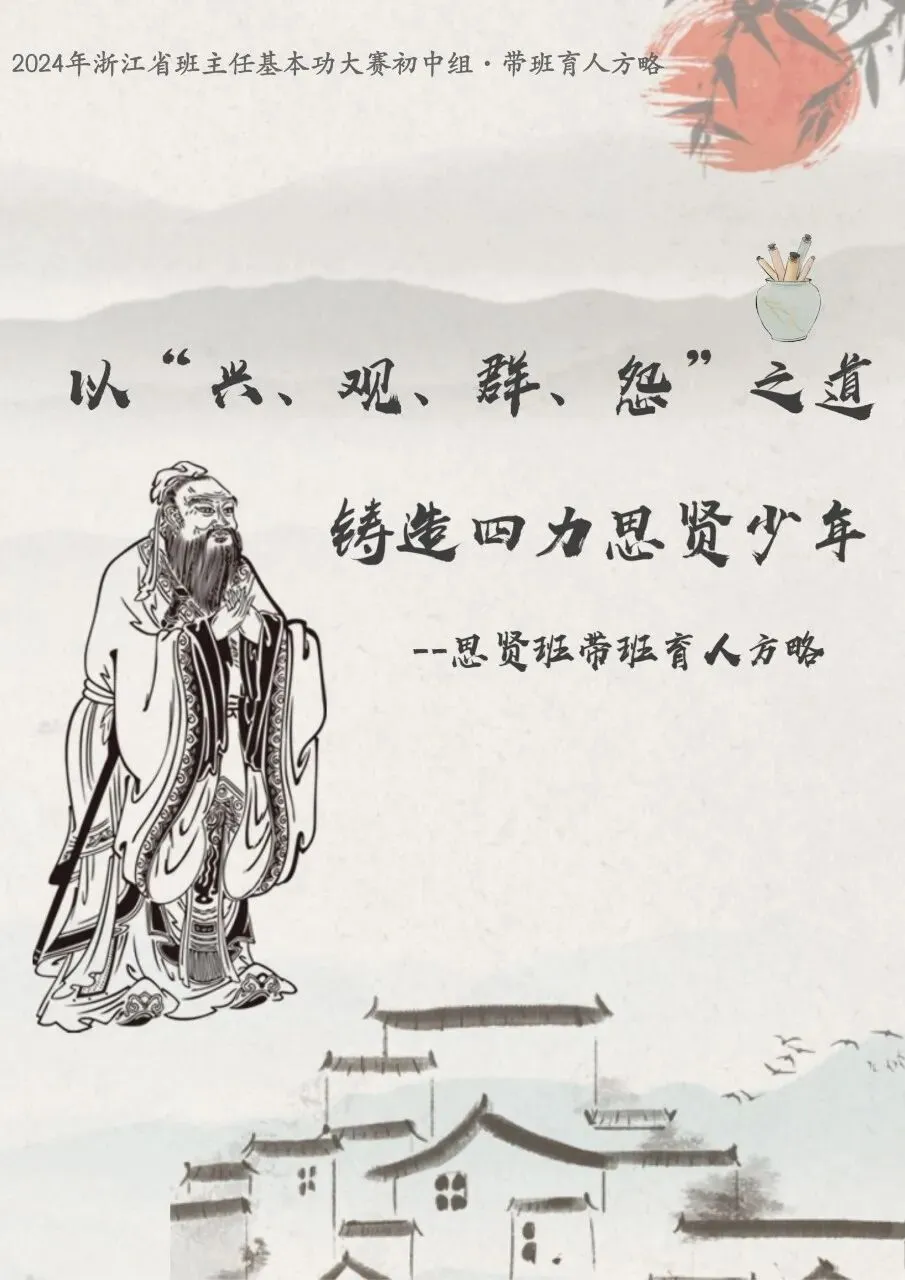 2024年浙江省班主任基本功大赛初中组·带班育人方略
以“兴、观、群、怨”之道
铸造四力思贤少年
--思贤班带班育人方略